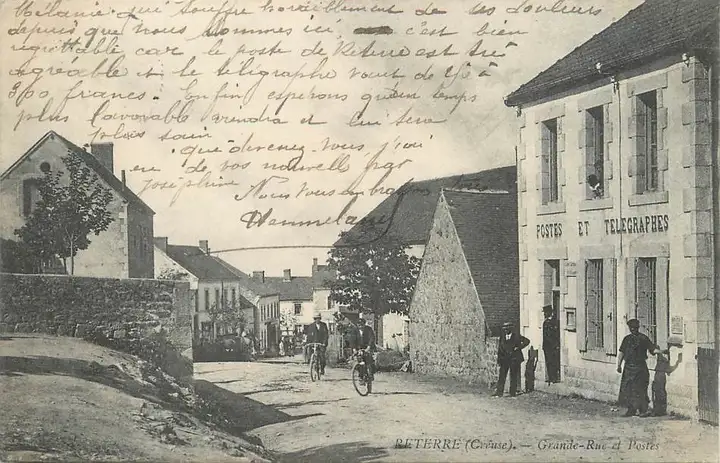 Mélanie qui souffre horriblement de ses douleurs
depuis que nous sommes ici, c'est bien
regrettable car le poste de Reterre est très
agréable et le télégraphe vaut de 250 à
300 francs. Enfin espérons qu'un temps
plus favorable viendra et lui sera
plus sain
que devenez vous, j'ai
eu de vos nouvelle par
Joséphine
Nous vous embrassons
POSTES ET TELEGRAPHES
RETERRE (Creuse). — Grande-Rue et Postes